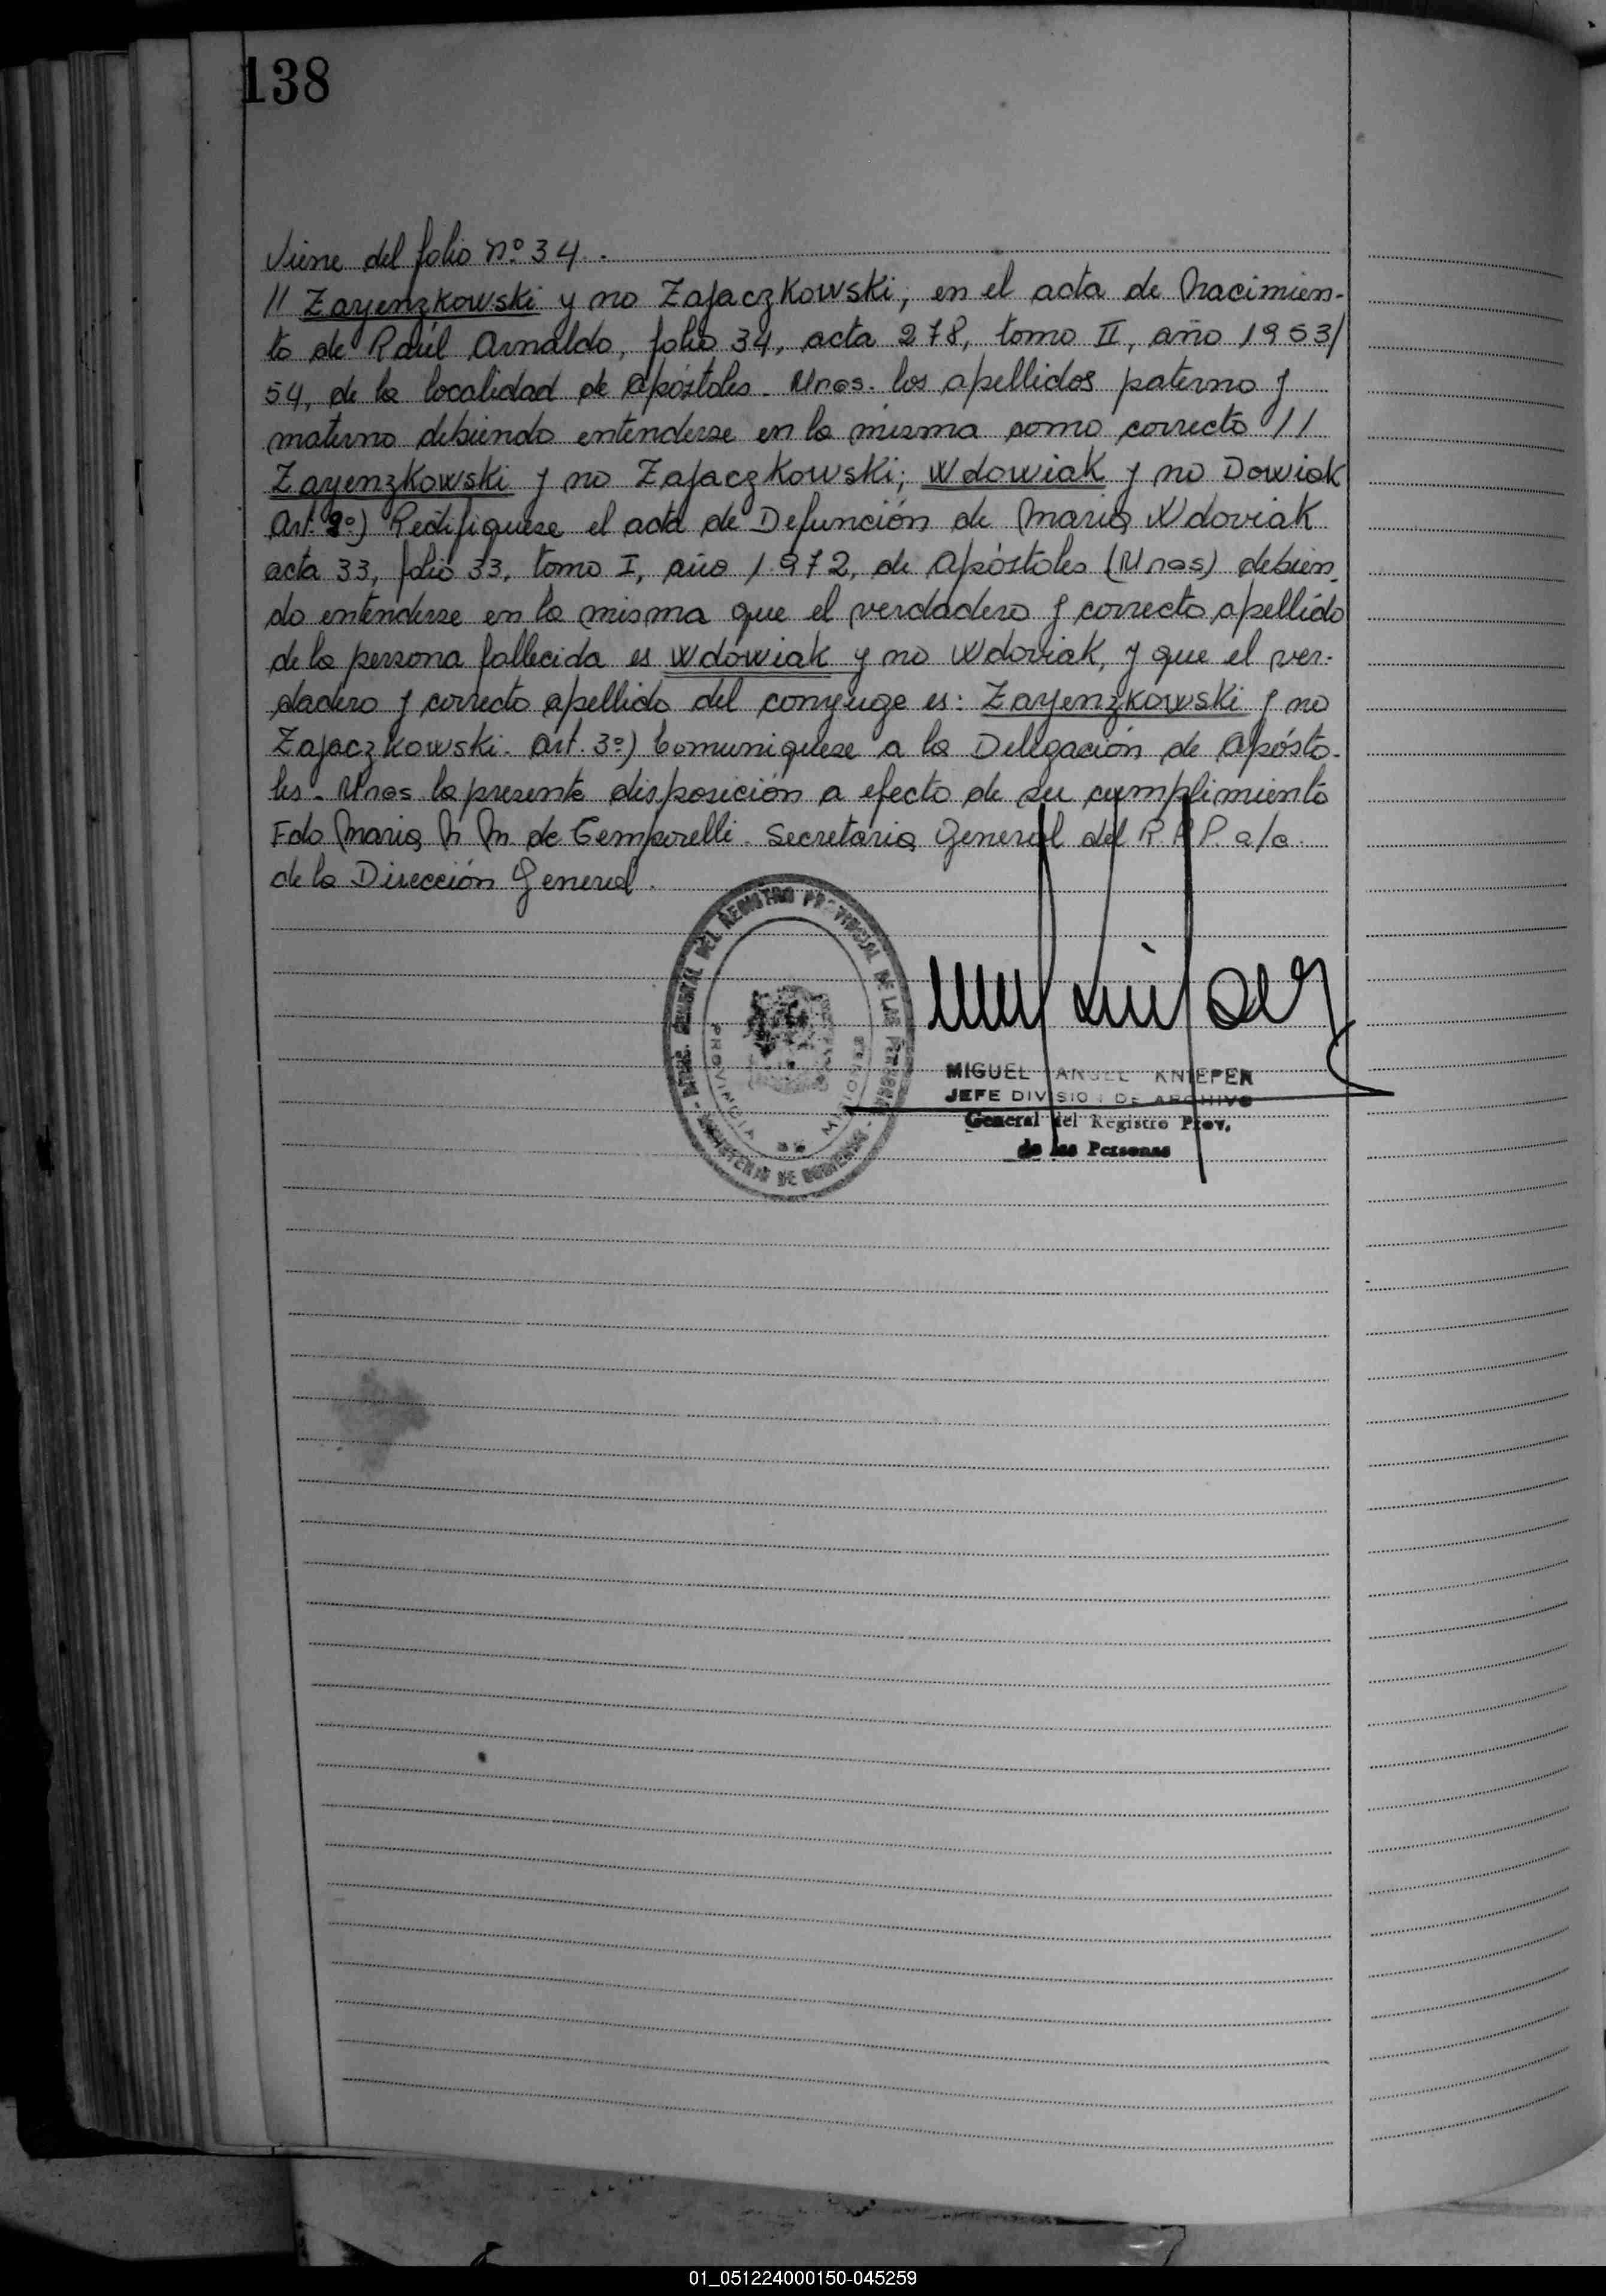 138
Viene del folio Nº 34.-
// Zayenzkowski y no Zajaczkowski, en el acta de Nacimien-
to de Raúl Arnaldo, folio 34, acta 278, tomo II, año 1953/
54, de la localidad de Apóstoles - Mnes. los apellidos paterno y
materno debiendo entenderse en la misma como correcto //
Zayenzkowski y no Zajaczkowski; Wdowiak y no Dowiak
Art. 2º) Rectifiquese el acta de Defunción de Maria Wdoviak
acta 33, folio 33, tomo I, año 1.972, de Apóstoles (Mnes) debien-
do entenderse en la misma que el verdadero y correcto apellido
de la persona fallecida es Wdowiak y no Wdoviak, y que el ver-
dadero y correcto apellido del conyuge es: Zayenzkowski y no
Zajaczkowski. Art. 3º) Comuniquese a la Delegación de Apósto-
les - Mnes la presente disposición a efecto de su cumplimiento
Fdo Maria N. M. de Temporelli. Secretaria General del R.P.P. a/c.
de la Dirección General.
GENERAL DEL REGISTRO PROVINCIAL DE LAS PERSONAS
PROVINCIA DE MISIONES
MINISTERIO DE GOBIERNO
MIGUEL ANGEL KNIEPER
JEFE DIVISION DE ARCHIVO
General del Registro Prov.
de las Personas
01_051224000150-045259